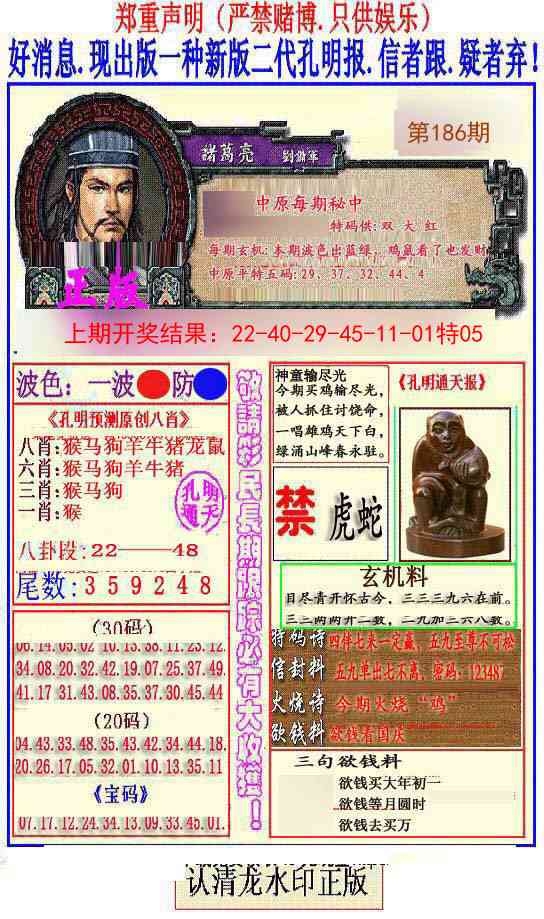 郑重声明（严禁赌博.只供娱乐）
好消息.现出版一种新版二代孔明报.信者跟.疑者弃！
第186期
諸葛亮 劉備軍
中原每期秘中
特码供:双大红
每期玄机:本期波色出蓝绿，鸡鼠看了也发财
中原平特五码:29、37、32、44、4
正版
上期开奖结果：22-40-29-45-11-01特05
波色：一波 防
《孔明预测原创八肖》
八肖:猴马狗羊牛猪龙鼠
六肖:猴马狗羊牛猪
三肖:猴马狗
一肖:猴
孔明通天
八卦段:22——48
尾数:359248
(30码)
06.14.05.02 10.13.38.11.23.12
34.08.20.32.42.19.07.25.37.49.
41.17.31.43.08.35.37.30.45.44
(20码)
04.43.33.48.35.43.42.34.44.18.
20.26.17.05.32.01.10.13.35.11
《宝码》
07.17.12.24.34.13.09.33.45.01.
敬請彩民長期跟踪必有大收獲！
神童输尽光
今期买鸡输尽光，
被人抓住讨饶命，
一唱雄鸡天下白，
绿涌山峰春永驻。
《孔明通天报》
禁 虎蛇
玄机料
目尽青开怀古今，三三三九六在前。
三三两两开二数，二九加三六八数。
特码诗 四伴七来一定赢，五九至尊不可松
信封料 五九单出七不离，密码：123487
火烧诗 今期火烧“鸡”
欲钱料 欲钱看国庆
三句欲钱料
欲钱买大年初一
欲钱等月圆时
欲钱去买万
认清龙水印正版